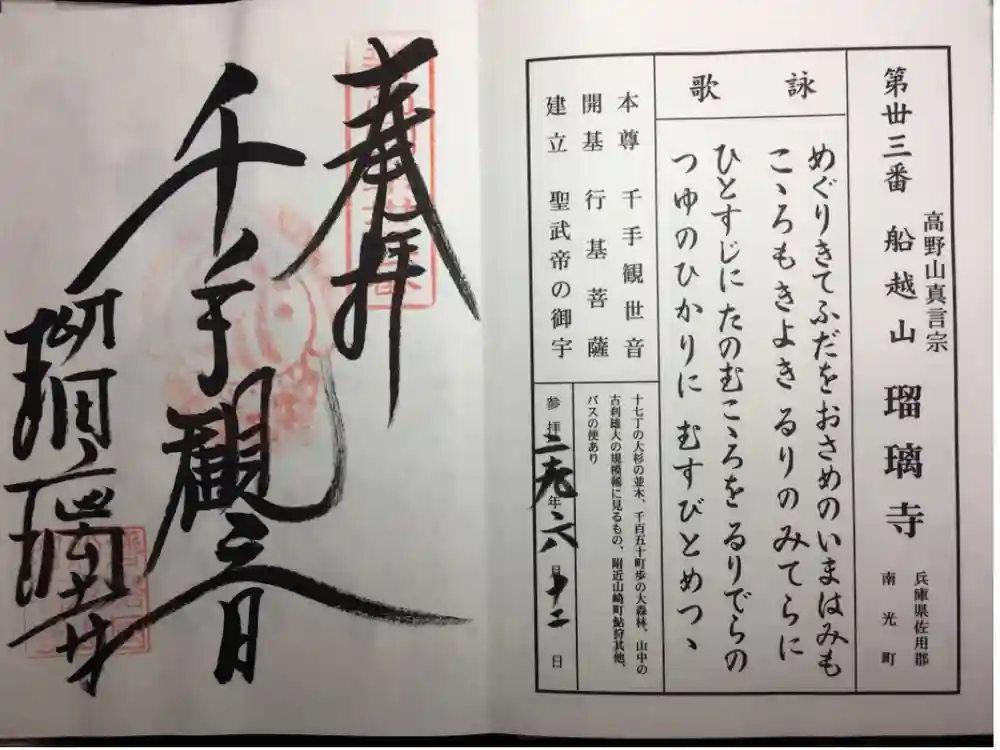 第丗三番 船越山 瑠璃寺
高野山真言宗
兵庫県佐用郡
南光町
詠歌
めぐりきてふだをおさめのいまはみも
こゝろもきよきるりのみてらに
ひとすじにたのむこゝろをるりでらの
つゆのひかりにむすびとめつゝ
本尊 千手観世音
開基 行基菩薩
建立 聖武帝の御宇
十七丁の大杉の並木、千百五十町歩の大森林、山中の
古刹雄大の規模稀に見るもの、附近山崎町鮎狩其他、
バスの便あり
参拝二九年六月十二日
奉拝
千手観音
瑠璃寺